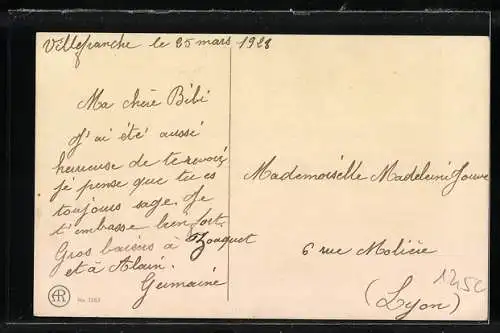 Villefranche le 25 mars 1928
Ma chère Bibi
J'ai été aussi
heureuse de te revoir
je pense que tu es
toujours sage. Je
t'embrasse bien fort.
Gros baisers à Zouquet
et à Alain.
Germaine
Mademoiselle Madeleine Jouve
6 rue Molière
(Lyon)
AR
No. 1263